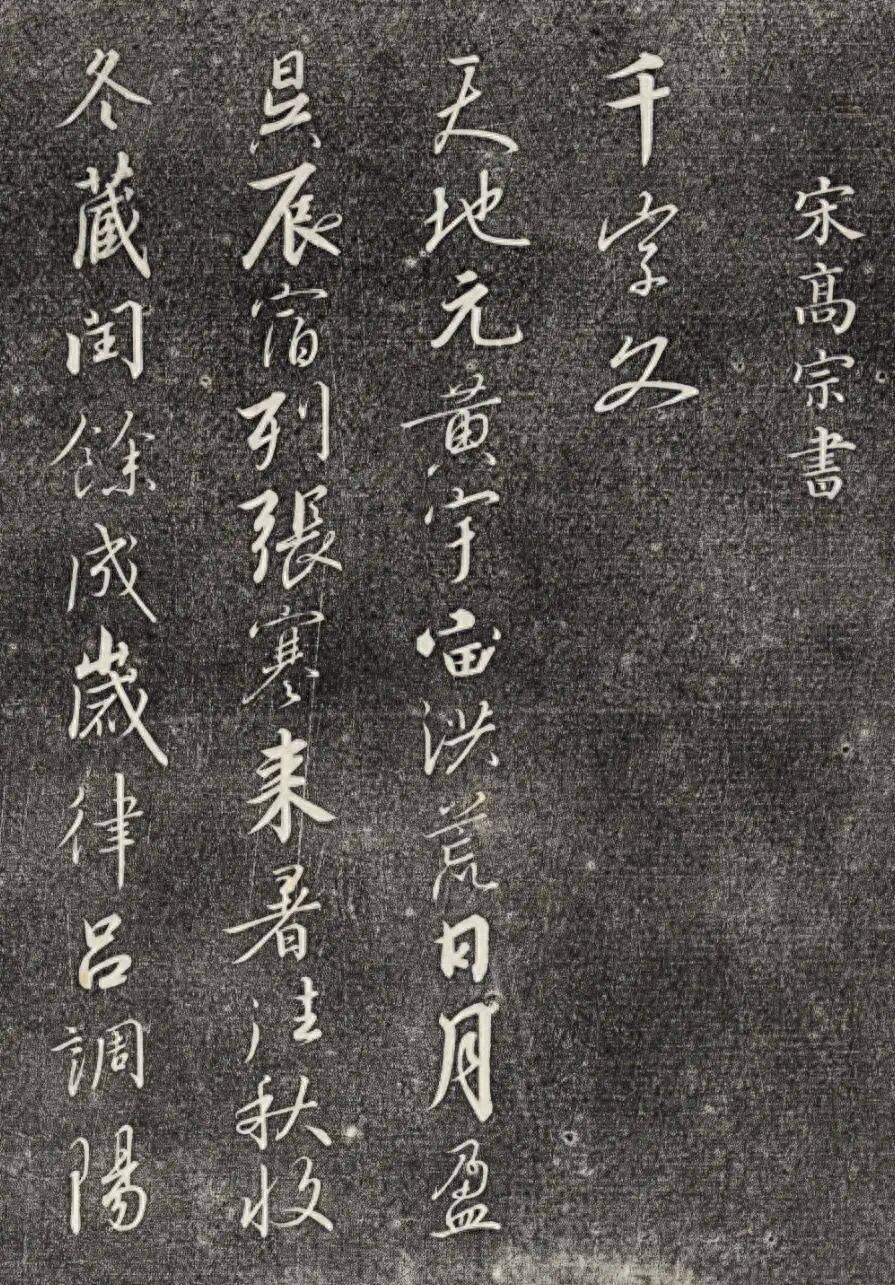 宋高宗書
千字文
天地元黃宇宙洪荒日月盈
昃辰宿列張寒来暑往秋收
冬藏閏餘成歲律吕調陽